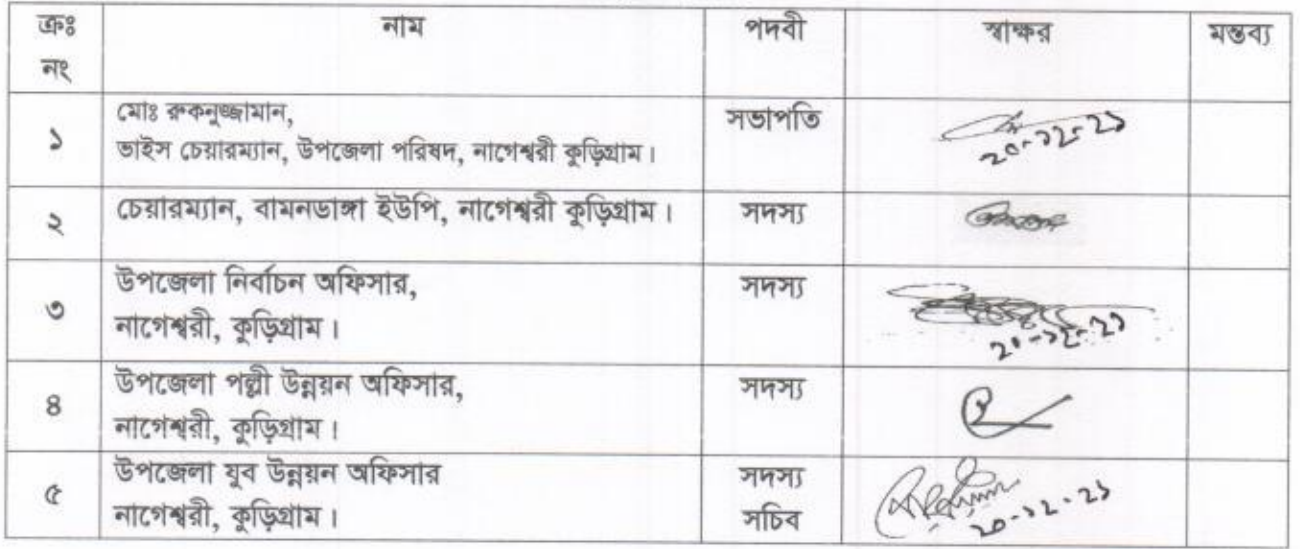 ক্রঃ নং নাম পদবী স্বাক্ষর মন্তব্য
১ মোঃ রুকনুজ্জামান, সভাপতি
ভাইস চেয়ারম্যান, উপজেলা পরিষদ, নাগেশ্বরী কুড়িগ্রাম।
২০-১২-২১
২ চেয়ারম্যান, বামনডাঙ্গা ইউপি, নাগেশ্বরী কুড়িগ্রাম। সদস্য
৩ উপজেলা নির্বাচন অফিসার, সদস্য
নাগেশ্বরী, কুড়িগ্রাম।
২০-১২-২১
৪ উপজেলা পল্লী উন্নয়ন অফিসার, সদস্য
নাগেশ্বরী, কুড়িগ্রাম।
৫ উপজেলা যুব উন্নয়ন অফিসার সদস্য
নাগেশ্বরী, কুড়িগ্রাম। সচিব
২০-১২-২১